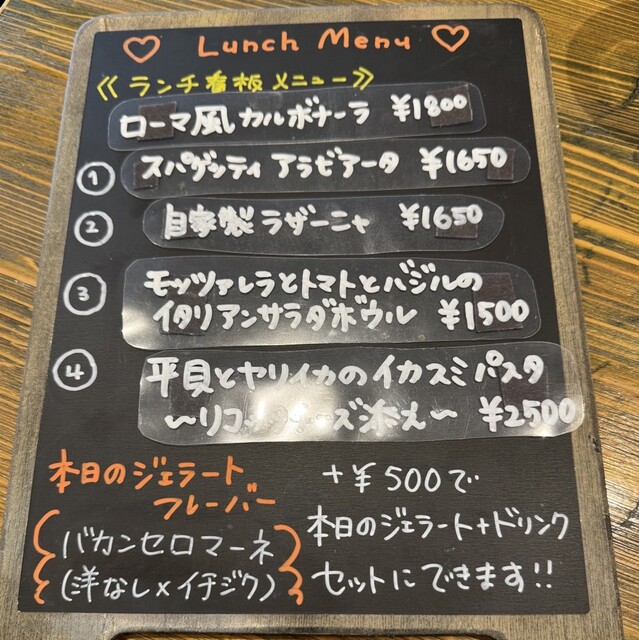 ♡ Lunch Menu ♡
≪ランチ看板メニュー≫
ローマ風カルボナーラ ¥1800
① スパゲッティ アラビアータ ¥1650
② 自家製ラザーニャ ¥1650
③ モッツァレラとトマトとバジルの
イタリアンサラダボウル ¥1500
④ 平貝とヤリイカのイカスミパスタ
〜リコッタチーズ添え〜 ¥2500
本日のジェラート
フレーバー
バカンセロマーネ
(洋なし×イチジク)
+¥500で
本日のジェラート+ドリンク
セットにできます!!